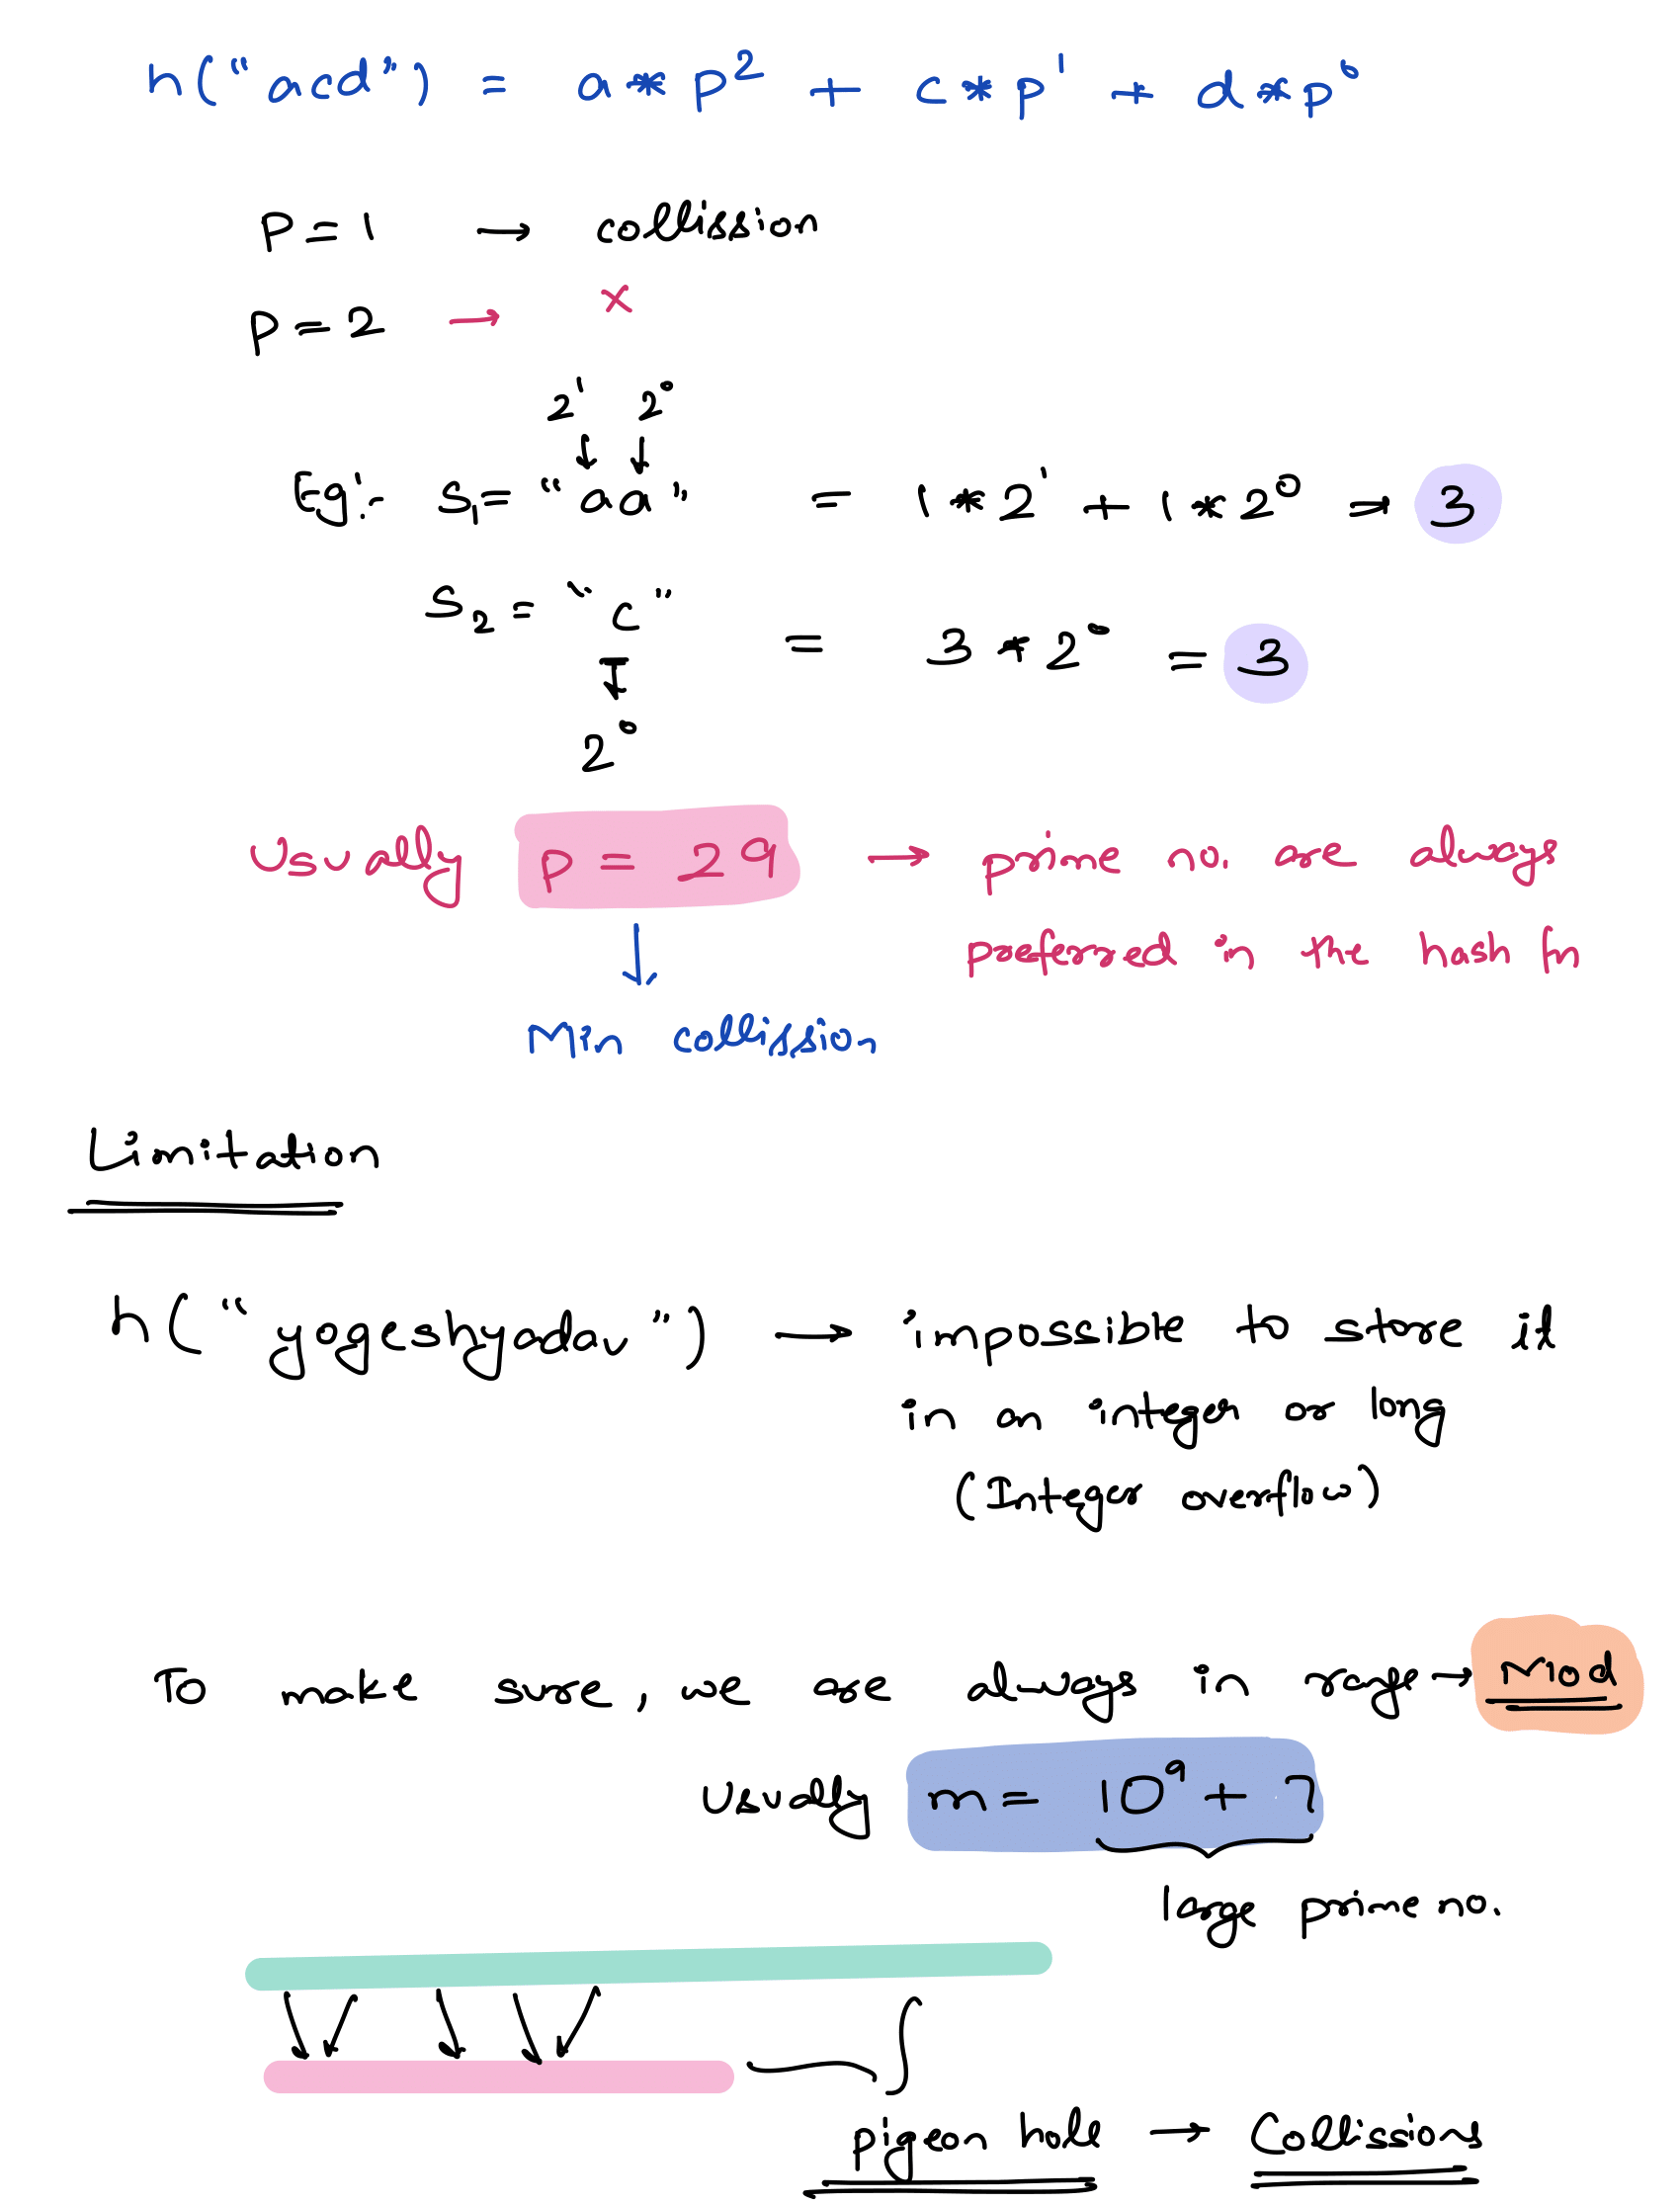 h("acd") = a * p² + c * p¹ + d * p⁰
P = 1 → collission
P = 2 → ×
2¹ 2⁰
↓ ↓
Eg:- S₁ = "aa" = 1 * 2¹ + 1 * 2⁰ ⇒ 3
S₂ = "c" = 3 * 2⁰ = 3
↓
2⁰
Usually p = 29 → prime no. are always
preferred in the hash fn
↓
Min collission
Limitation
h("yogeshyadav") → impossible to store it
in an integer or long
(Integer overflow)
To make sure, we are always in range → Mod
Usually m = 10⁹ + 7
large prime no.
pigeon hole → Collissions